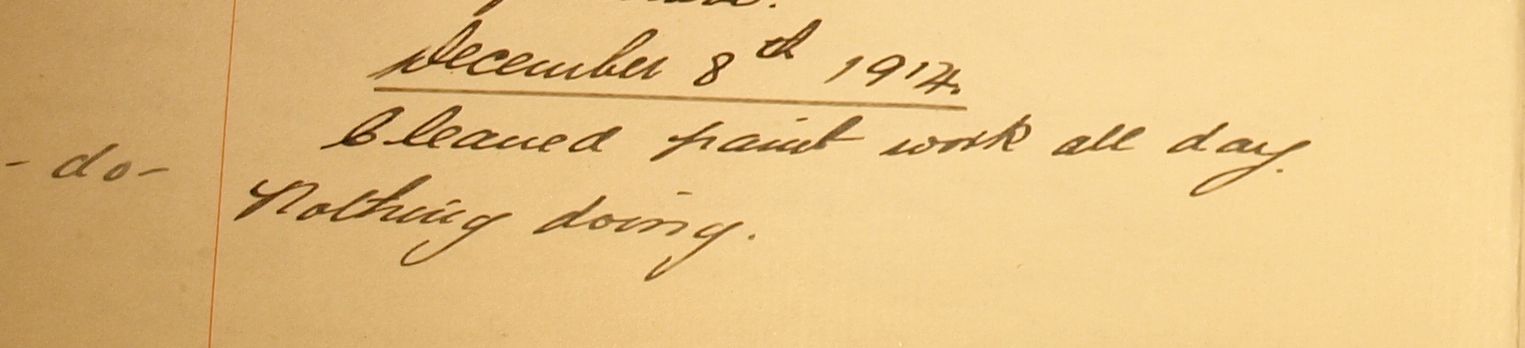 December 8th 1914.
Cleaned paint work all day.
- do -
Nothing doing.